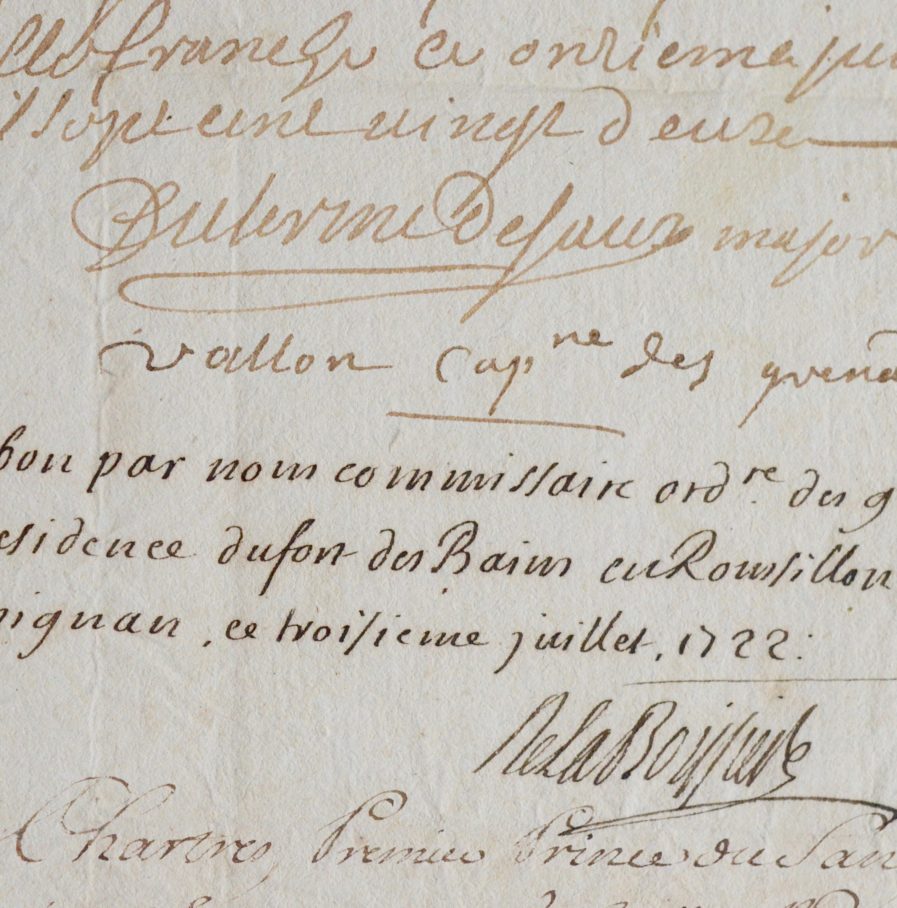 franche ce onzieme jui
sept cent vingt deuxe
major
vallon Capne des grena
bon par nous commissaire ordre. des g
esidence du fort des Bains en Roussillon
pignan, ce troisieme juillet, 1722:
De la Boissiere
Chartres, Premier Prince du San